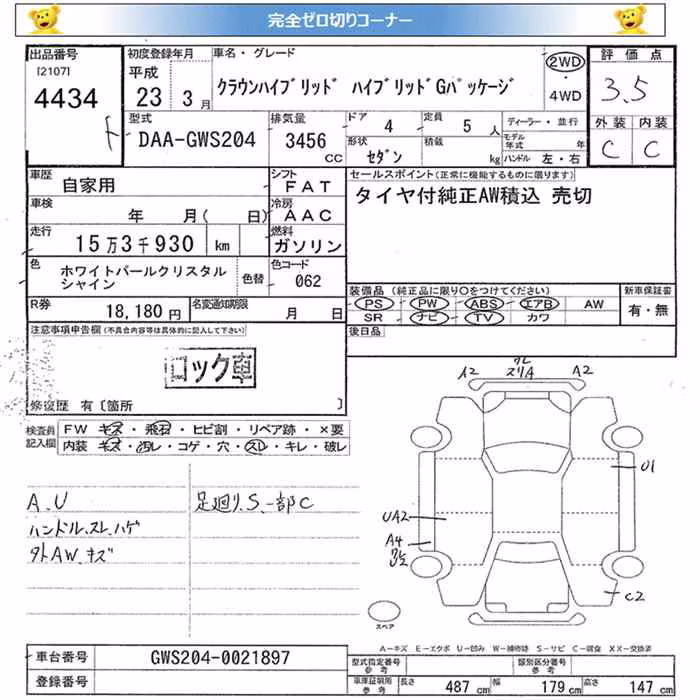 完全ゼロ切りコーナー
出品番号 初度登録年月 車名・グレード 評価点
[2107] 平成 2WD
4434 23 3月 クラウンハイブリッド ハイブリッドGパッケージ ・ 3.5
4WD
型式 排気量 ドア 4 定員 5 人 ディーラー・並行 外装 内装
ト DAA-GWS204 3456 CC 形状 セダン 積載 kg モデル年式 年 C C
ハンドル 左・右
車歴 自家用 シフト FAT セールスポイント(正常に機能するものに限ります)
車検 年 月( 日) 冷房 AAC タイヤ付純正AW積込 売切
走行 15万3千930 km 燃料 ガソリン
色 ホワイトパールクリスタル 色替 色コード
シャイン 062 装備品 (純正品に限り○をつけてください) 新車保証書
R券 18,180円 名変通知期限 月 日 PS PW ABS エアB AW 有・無
SR ナビ TV カワ
注意事項申告欄(不具合内容等は具体的に記入して下さい) 後日品
ロック車
修復歴 有〔箇所 〕
検査員 FW キズ・飛石・ヒビ割・リペア跡・×要
記入欄 内装・キズ・汚レ・コゲ・穴・スレ・キレ・破レ
A2 A2
U1
A.U 足廻り.S.一部C
ハンドル.スレ.ハゲ UA2
外AW.キズ A4
C2
スペア
A-キズ E-エクボ U-凹み W-補修跡 S-サビ C-腐食 XX-交換済
車台番号 GWS204-0021897 型式指定番号 参考 類別区分番号 参考
登録番号 車庫証明用 参考 長さ 487cm 幅 179cm 高さ 147cm